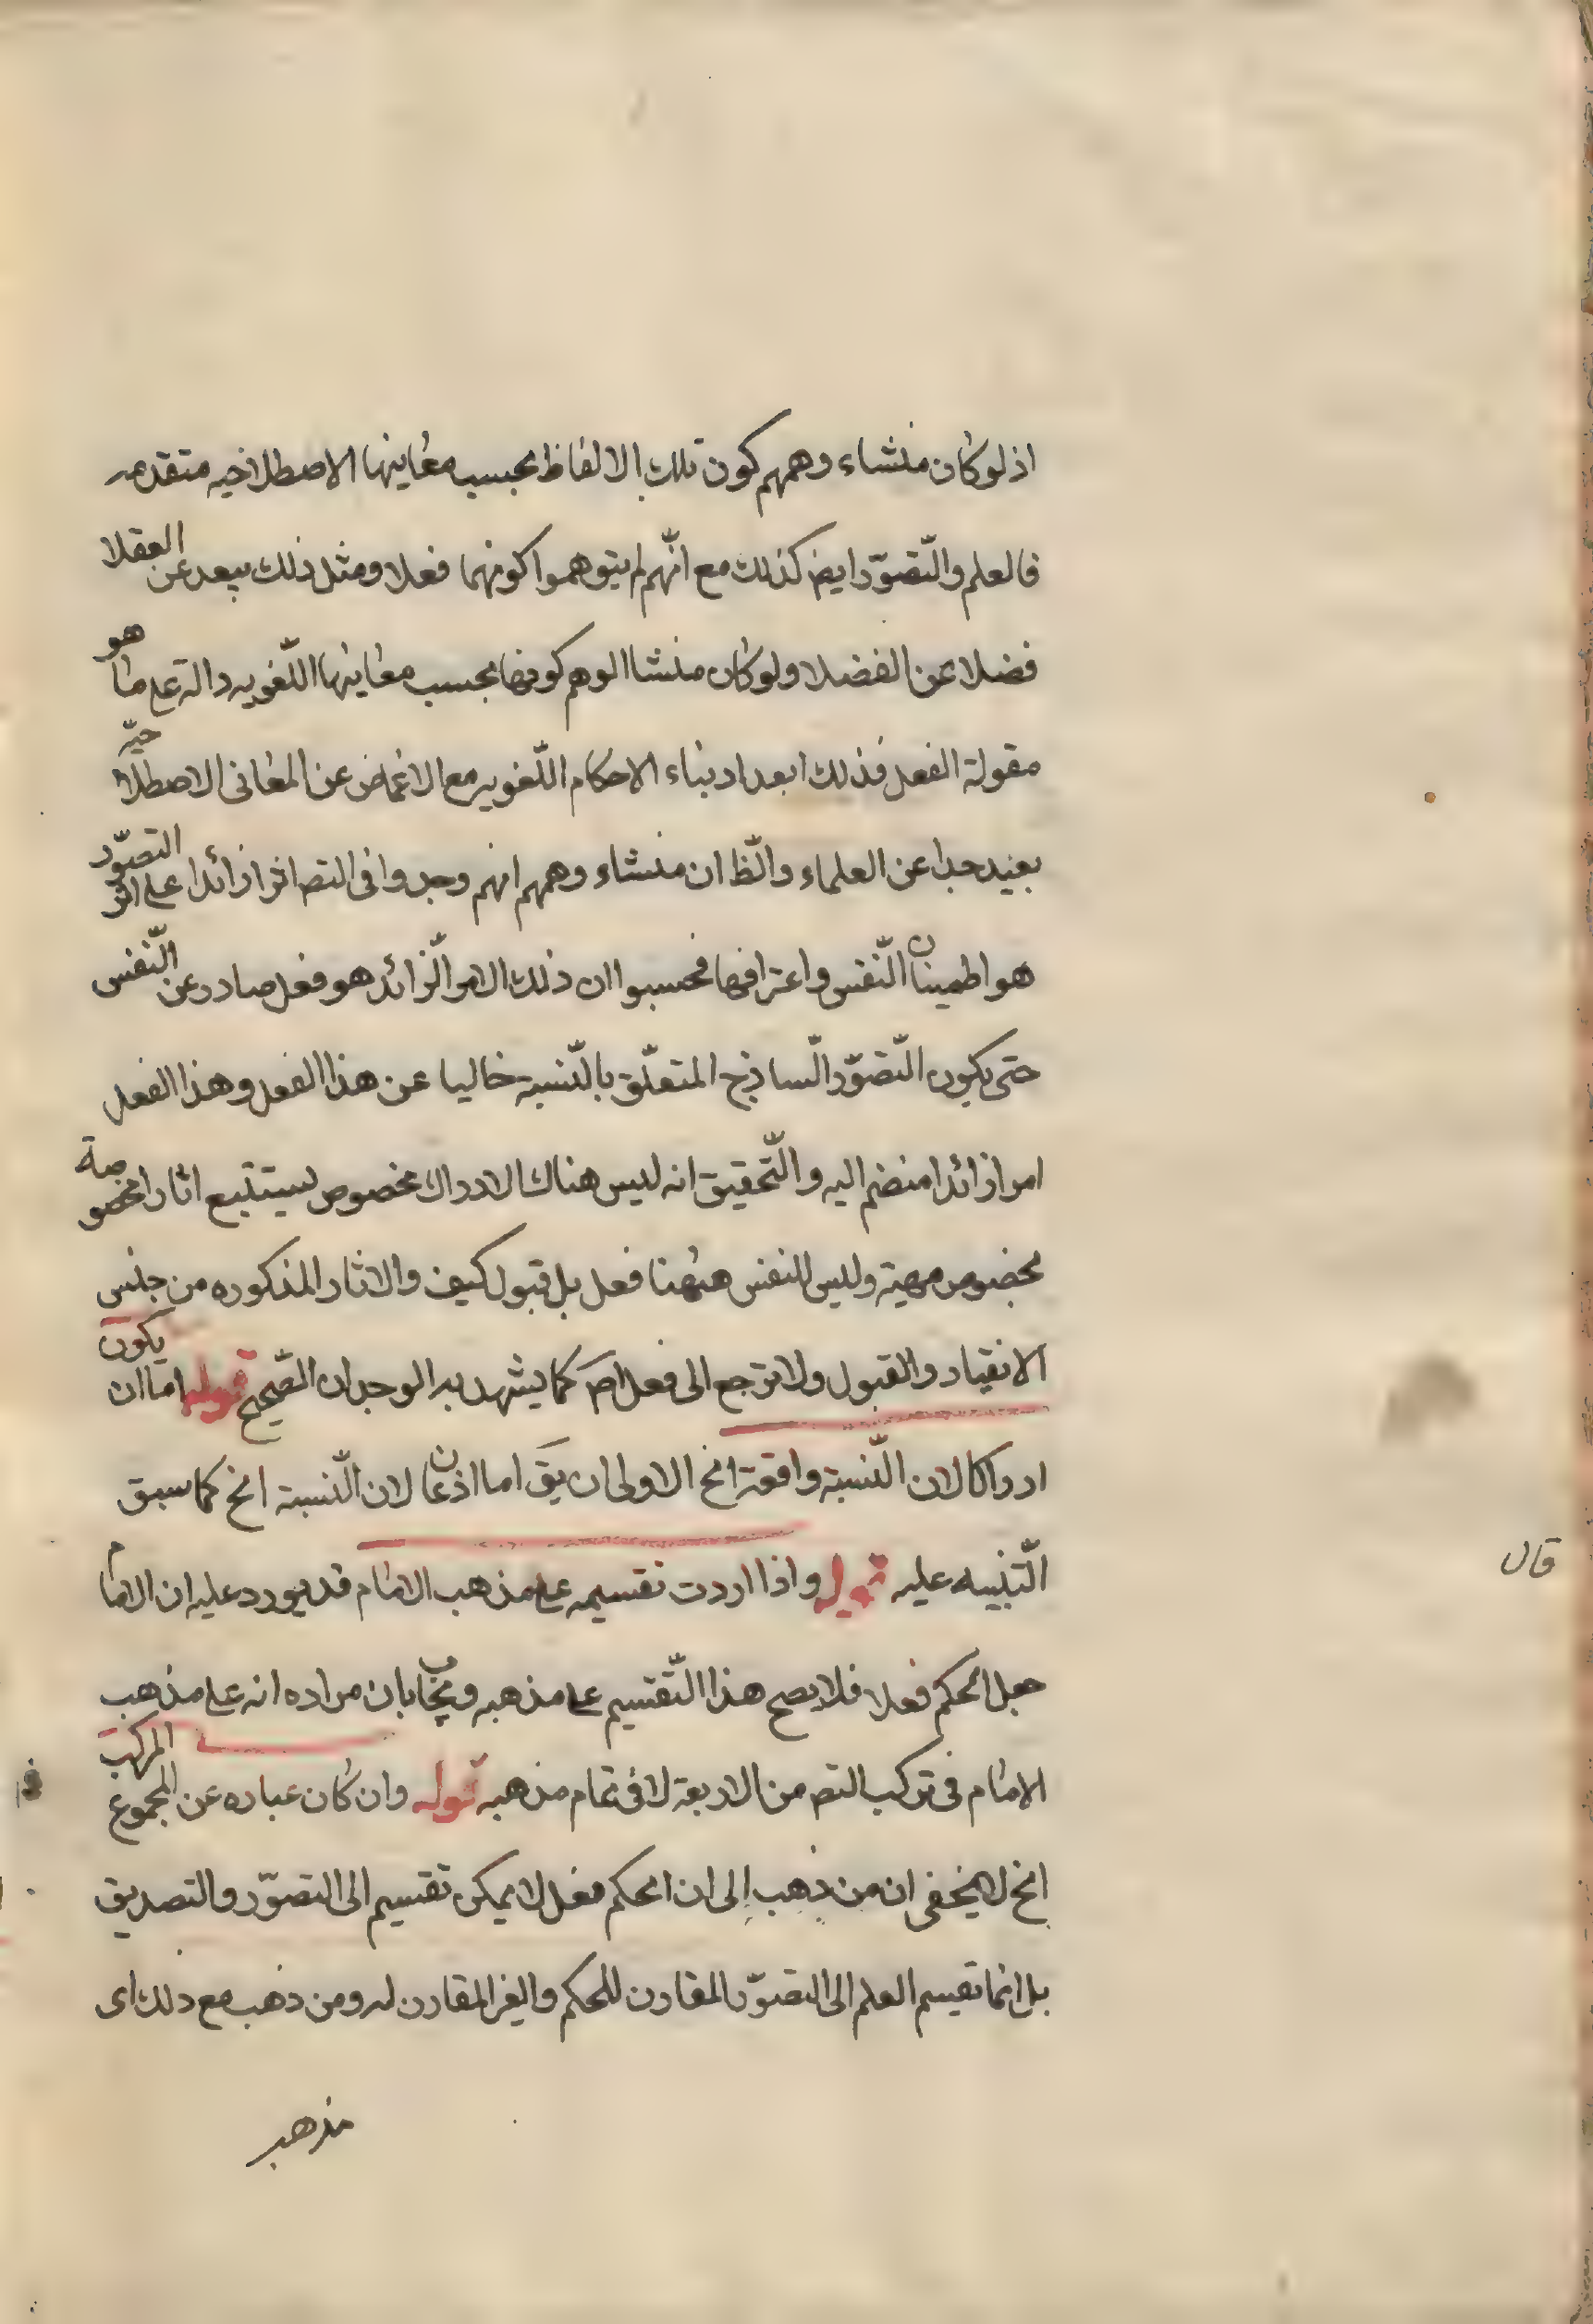 اذ لو كان منشاء وهمهم كون تلك الالفاظ بحسب معاينها الاصطلاحيه متقدمه
فالعلم والتّصوّر ايضا كذلك مع انّهم لم يتوهموا كونهما فعلا ومثل ذلك يبعد عن العقلا
فضلا عن الفضلا ولو كان منشا الوهم كونها بحسب معاينها اللّغويه دالة على ما هو
مقولة الفعل فذلك ابعد اد بناء الاحكام اللّغويه مع الاغماض عن المعانى الاصطلاحيّه
بعيد جدا عن العلماء والّظ ان منشاء وهمهم انهم وجدوا فى التص اثرا زائدا على اثر التصوّر
هو اطمينان النّفس واعترافها فحسبوا ان ذلك الامر الّزائد هو فعل صادر عن النّفس
حتى يكون التّصوّر السّاذج المتعلّق بالنّسبة خاليا عن هذا الفعل وهذا الفعل
امرا زائدا منضم اليه والتّحقيق انه ليس هناك الا ادراك مخصوص يستتبع اثارا مخصوصة
بخصوص مهية وليس للنفس ههنا فعل بل قبول كيف والاثار المذكوره من جنس
الانقياد والقبول ولا ترجع الى فعل اصَ كما يشهد به الوجدان الصّحيح قوله اما ان يكون
ادراكا لان النّسبة واقعة الخ الاولى ان يقَ اما اذعان لان النّسبة الخ كما سبق
التّنبيه عليه قوله واذا اردت تقسيمه على مذهب الامام قد يورد عليه ان الامام
جعل الحكم فعلا فلا يصح هذا التّقسيم على مذهبه ويجاب بان مراده انه على مذهب
الامام فى تركب التص من الاربعة لا فى تمام مذهبه قوله وان كان عباره عن المجموع المركب
الخ لا يخفى ان من ذهب الى ان الحكم فعل لا يمكن تقسيم الى التصوّر والتصديق
بل انما تقيسم العلم الى التصوّر المقارن للحكم والغير المقارن له ومن ذهب مع ذلك اى
مذهب
قال